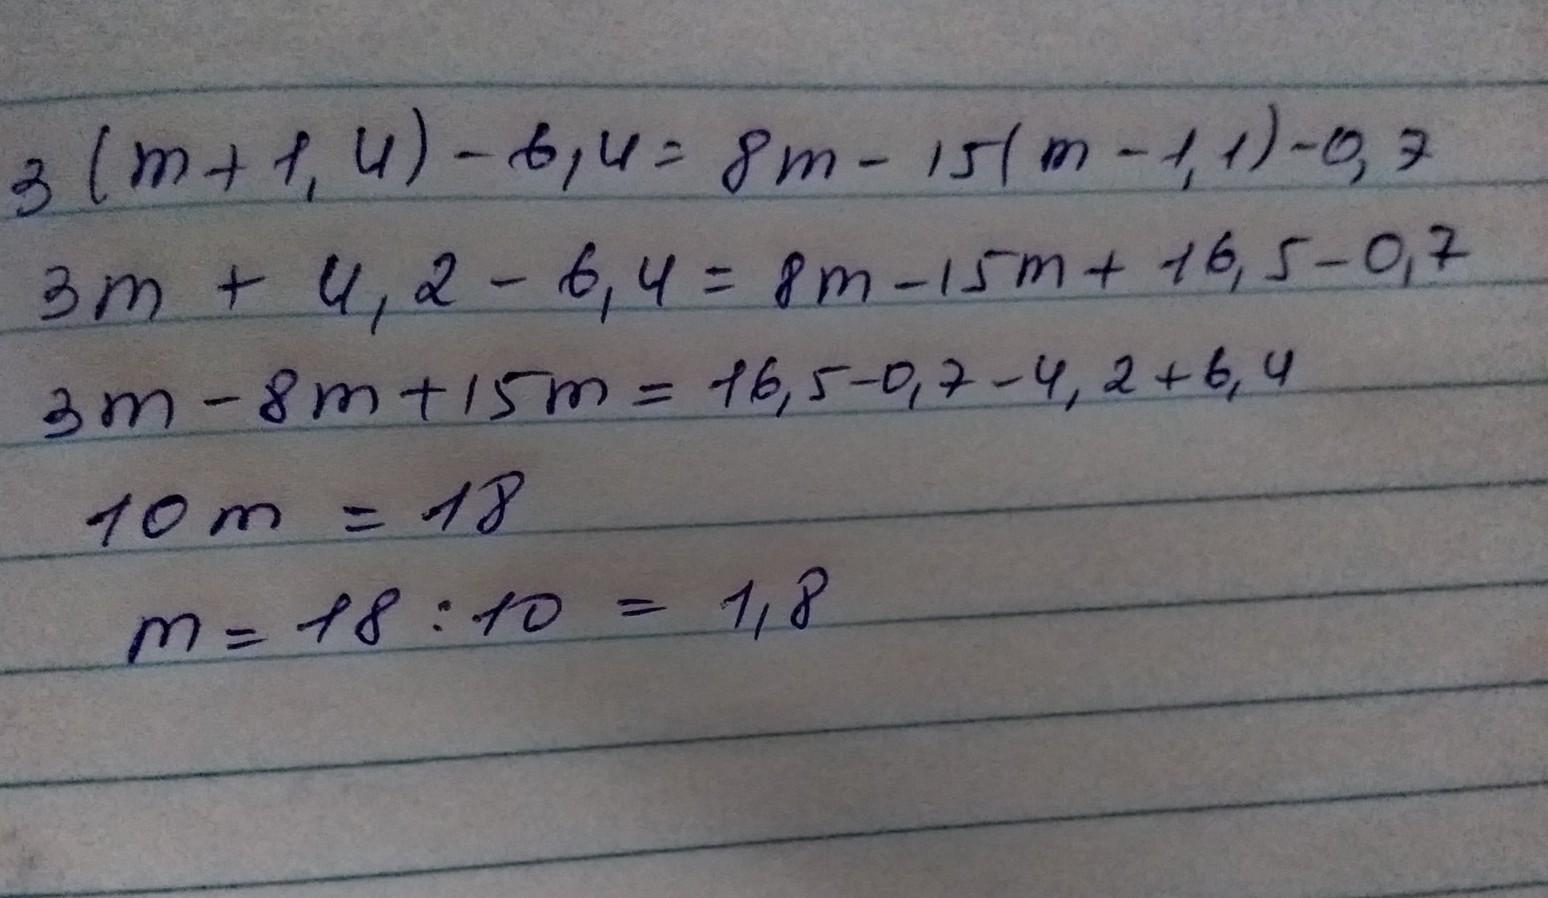 3(m+1,4)-6,4=8m-15(m-1,1)-0,7
3m+4,2-6,4=8m-15m+16,5-0,7
3m-8m+15m=16,5-0,7-4,2+6,4
10m=18
m=18:10=1,8